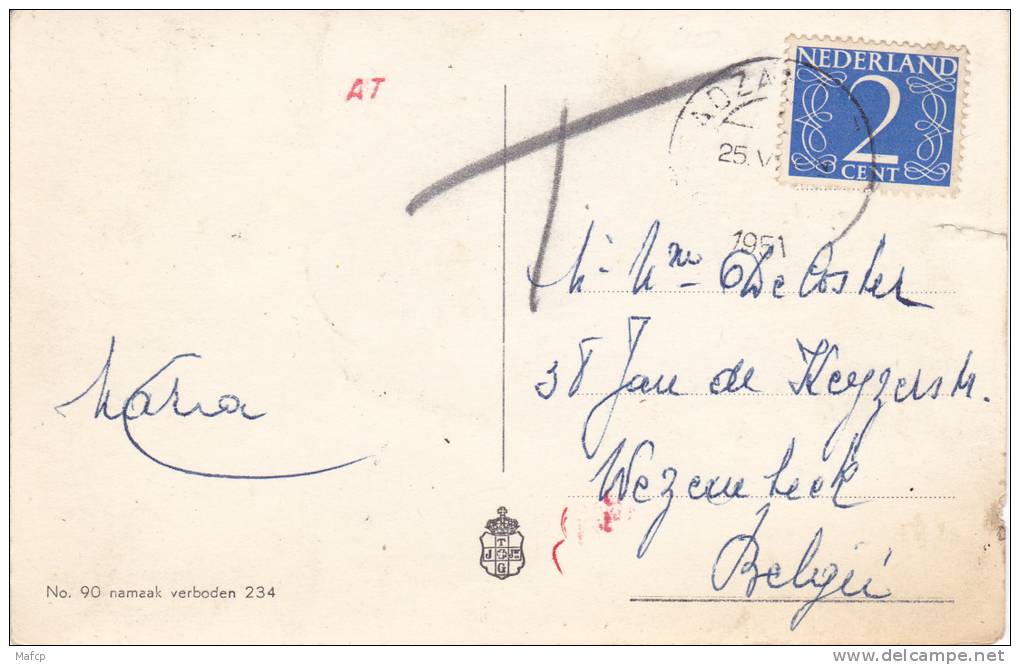 AT
NEDERLAND
2
CENT
ADZA
25.V
1951
M. Mme De Coster
38 Jan de Keyzerstr.
Wezembeek
België
Maria
T
J Jm
G
No. 90 namaak verboden 234
Mafcp
delcampe.net